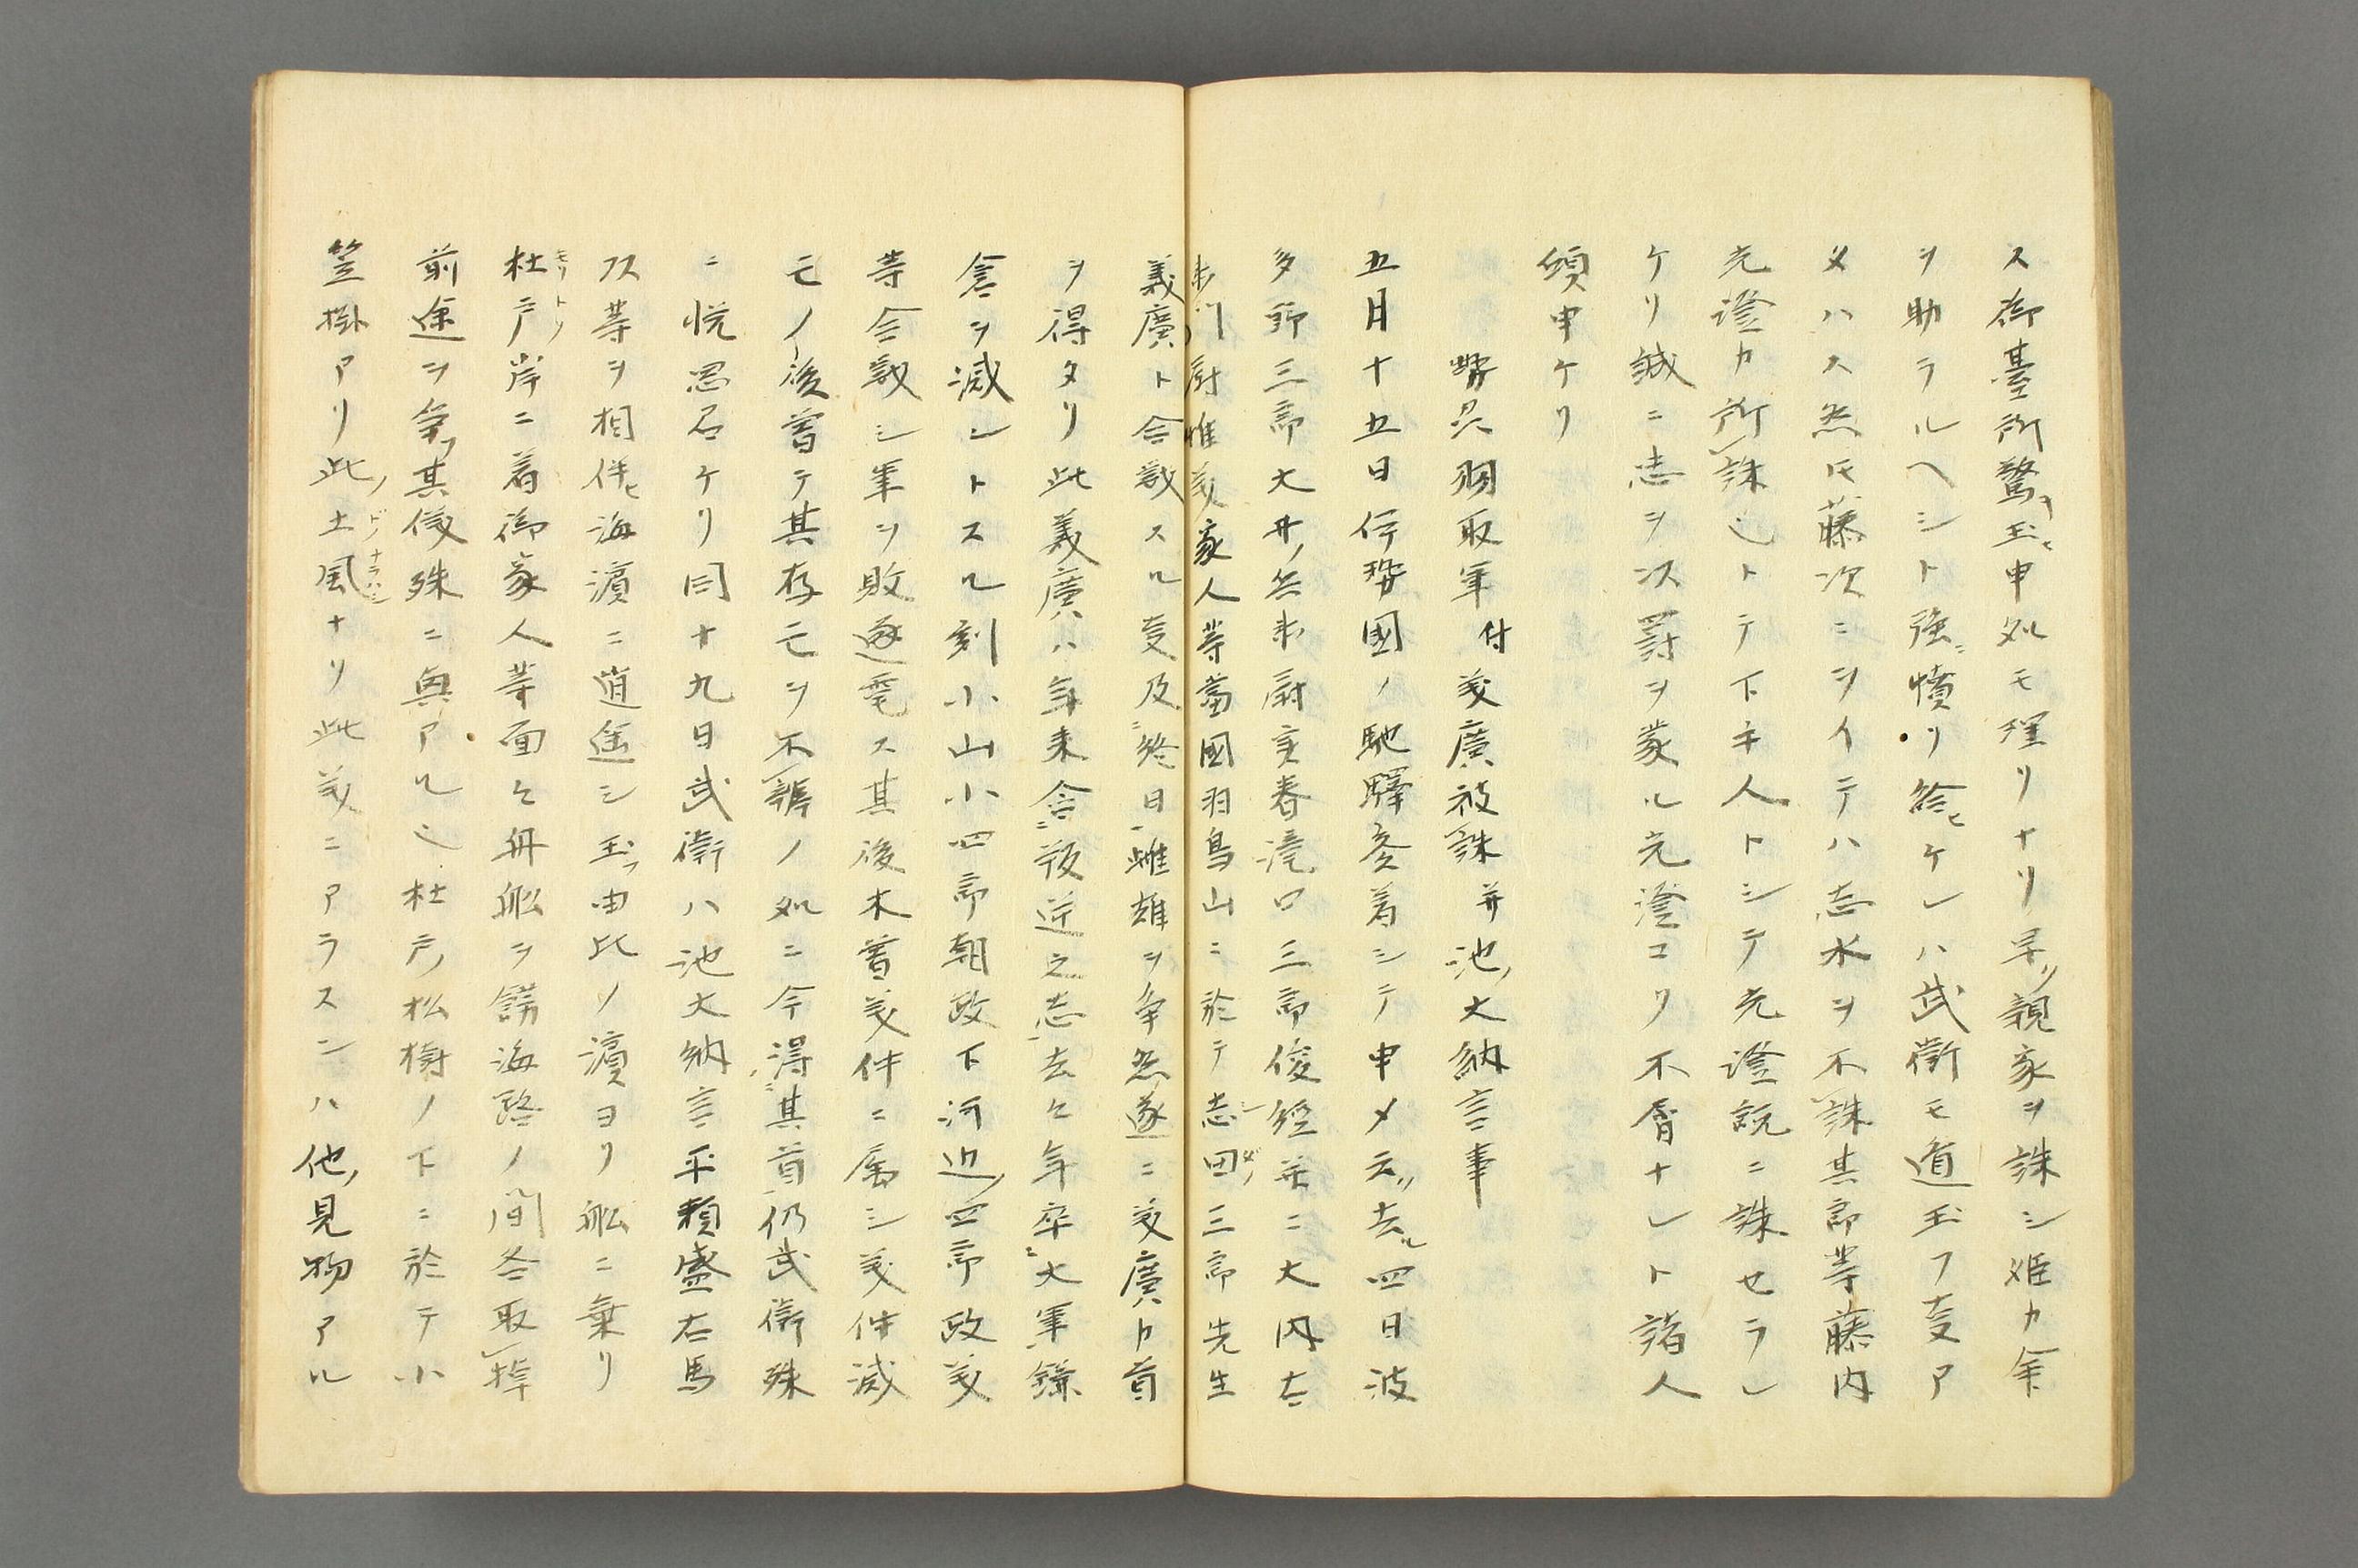 ス御臺所驚キ玉ヒ申処モ理リナリ早リ親家ヲ誅シ姫カ命
ヲ助ラルヘシト強ニ憤リ給ヒケレハ武衛モ遁玉フ支ア
タハス然氏藤次ニツイテハ志水ヲ不誅其郎等藤内
光澄カ所誅也トテ下手人トシテ光澄誂ニ誅セラレ
ケリ誠ニ志ヲ次罸ヲ蒙ル光澄コリ不肖ナレト諸人
傾申ケリ
勢州羽取軍付義廣被誅并池ノ大納言事
五月十五日伊勢國ノ馳驛参着シテ申メ云ク去ル四日波
多野三郎大井ノ兵衛尉実春滝口三郎俊経并ニ大内右
衛門ノ尉惟義家人等當國羽鳥山ニ於テ志田三郎先生
義廣ト合戦スル支及ニ終日ニ雌雄ヲ争然遂ニ義廣カ首
ヲ得タリ此義廣ハ年来含ニ叛逆之志ヲ去々年卒ニ大軍鎌
倉ヲ滅シトスル刻小山小四郎朝政下河辺ノ四郎政義
等合戦シ軍ヲ敗逐電ス其後木曽義仲ニ属シ義仲滅
モノ後曽テ其存亡ヲ不辨ノ処ニ今得ニ其首ヲ仍武衛殊
ニ悦思召ケリ同十九日武衛ハ池大納言平頼盛右馬
頭等ヲ相伴ヒ海濱ニ逍遥シ玉フ由比ノ濱ヨリ舩ニ乗リ
杜戸岸ニ着御家人等面々舟舩ヲ餝海路ノ間各取棹
前途ヲ争フ其儀殊ニ興アル也杜戸ノ松樹ノ下ニ於テ小
笠掛アリ此ノ土風ナリ此義ニアラスンハ他ノ見物アル